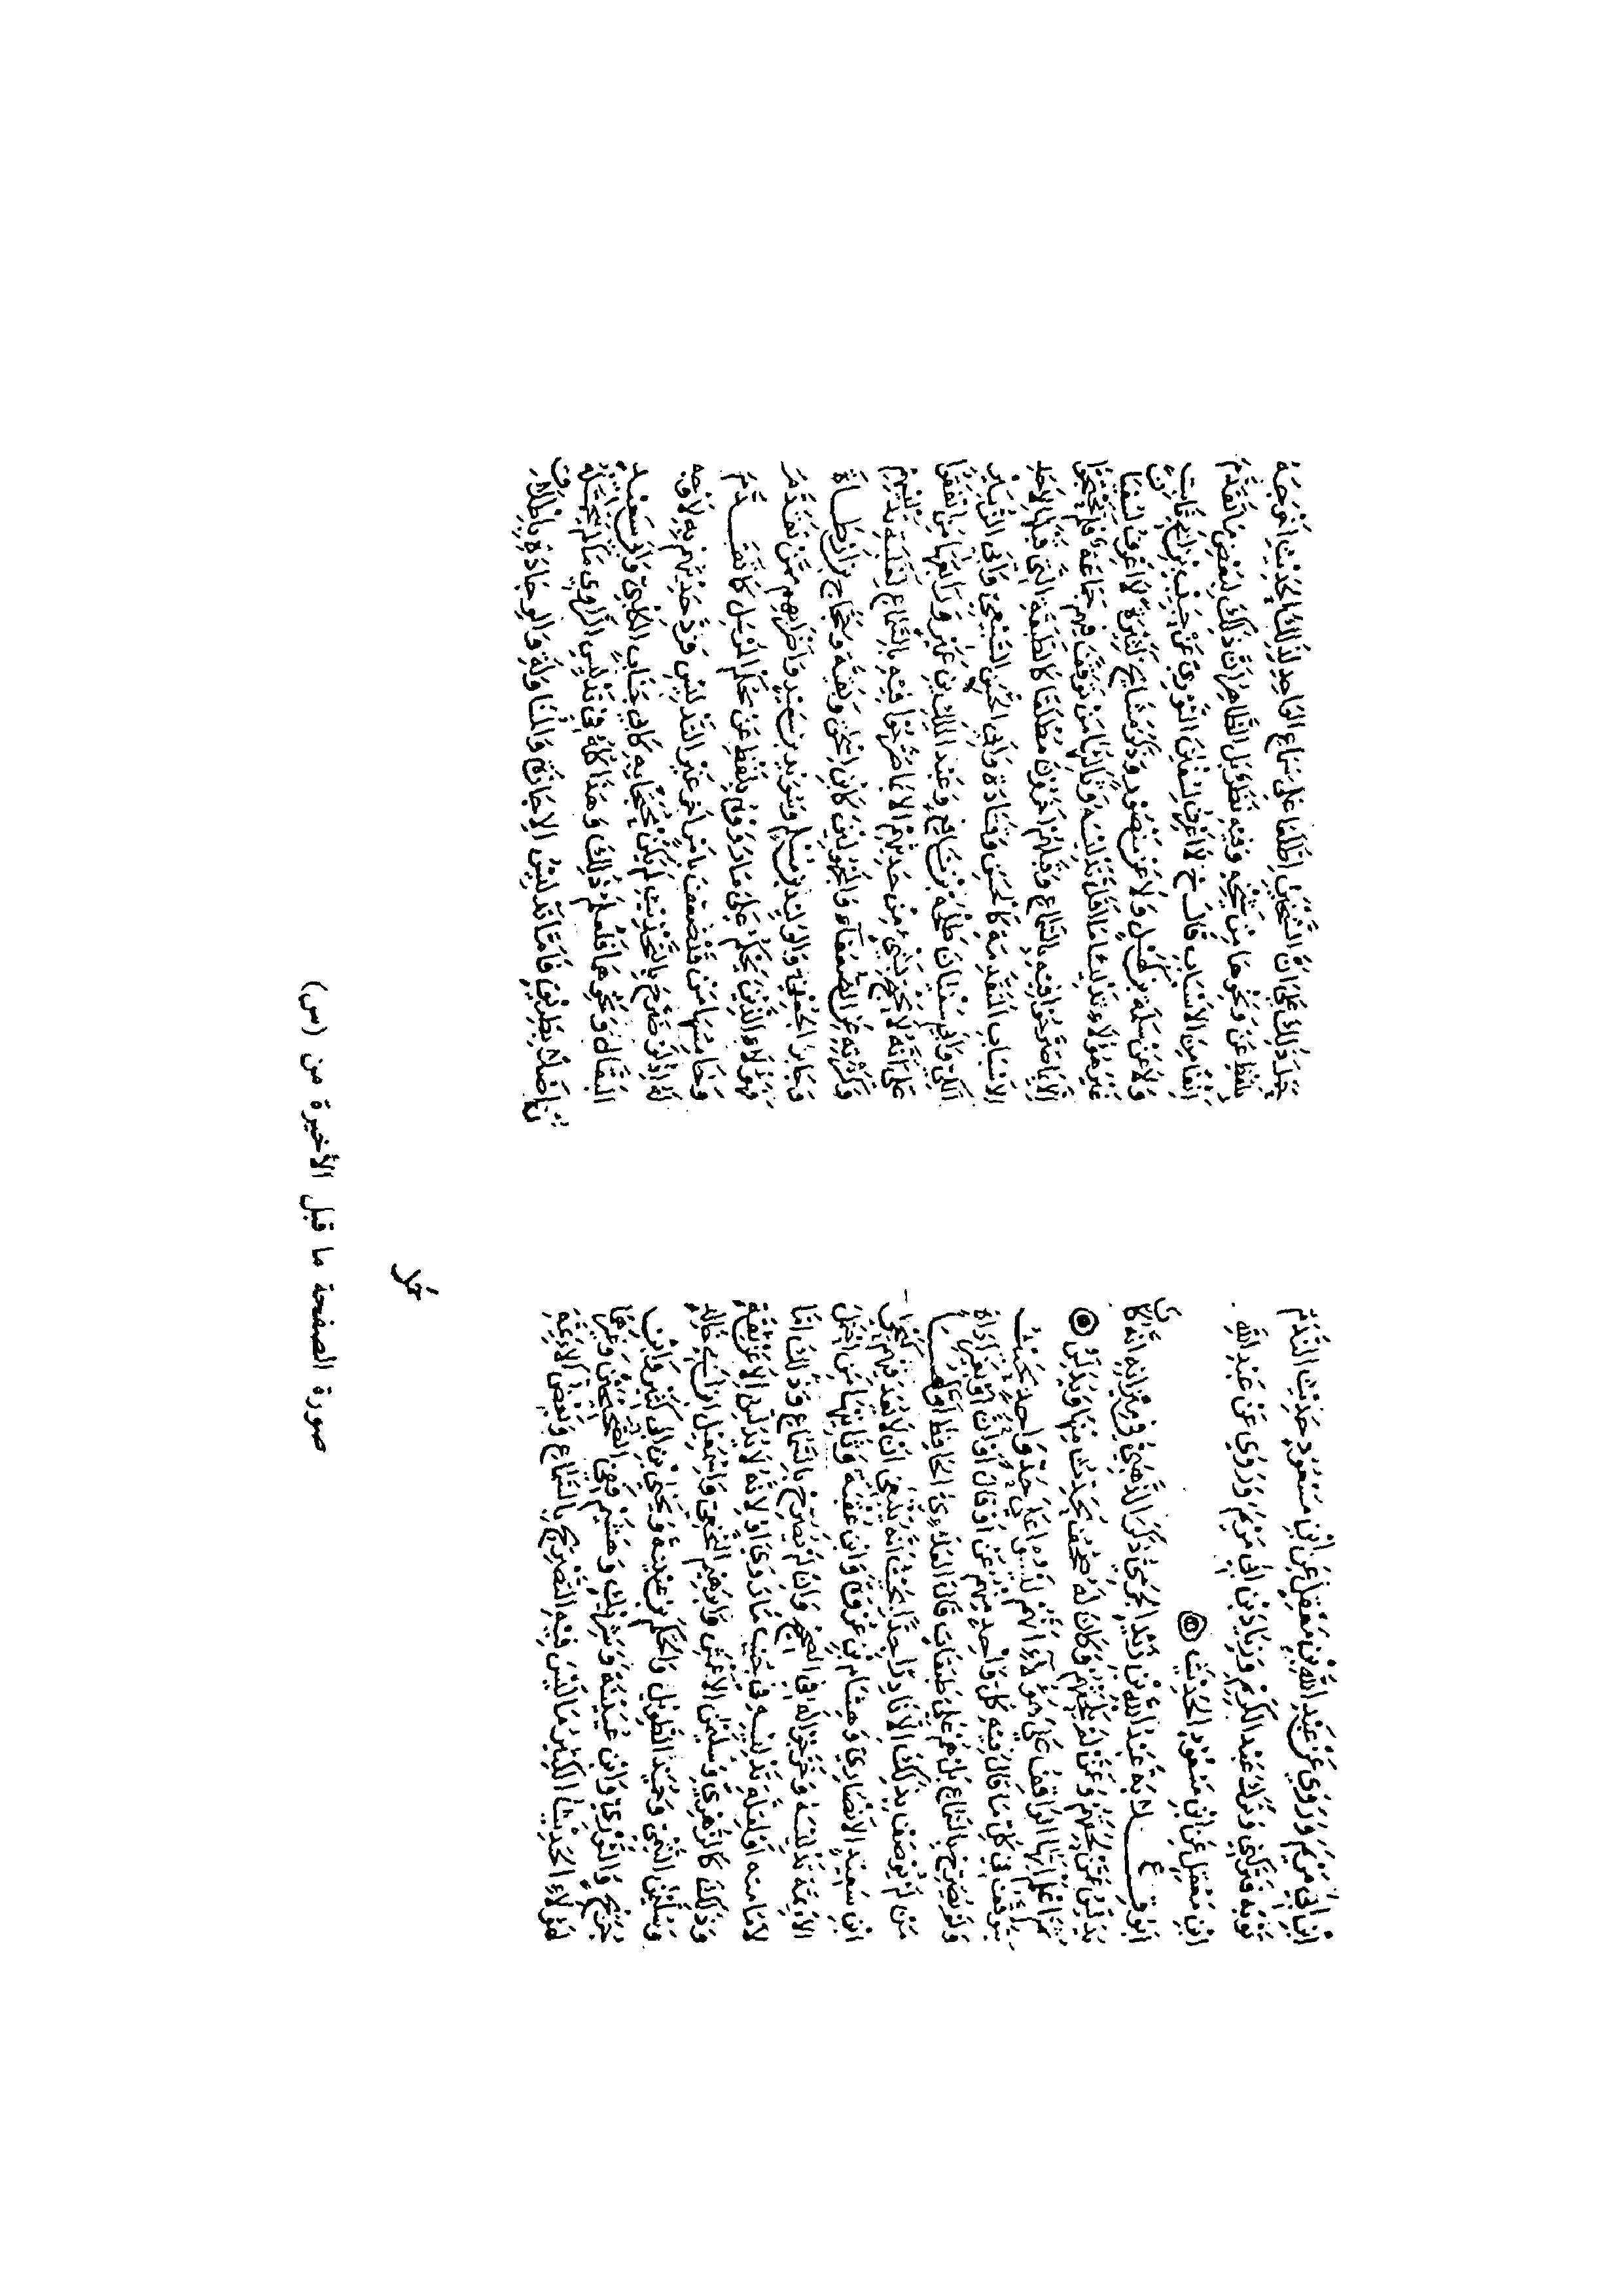 ابن ابي مريم وروي عن عبد الله بن معقل عن ابن مسعود حديث الندم
توبة فتركني وترك عبد الكريم وزياد بن ابي مريم وروي عن عبد الله
ابن معقل عن ابن مسعود الحديث
ابو قلابة عبد الله بن زيد الجرمي ذكر الذهبي في ميزانه انه كان
يدلس عمن لحقهم وعمن لم يلحقهم وكان له صحف يحدث منها ويدلس
ثم اعلم ايها الواقف على هولاء انهم ليسوا على حد واحد بحيث
يتوقف في كل ما قال فيه كل واحد منهم عن او قال او ان او بغير اداة
ولم يصرح بالسماع بل هم على طبقات قال العلائي الحافظ اولها
من لم يوصف بذلك الا نادرا جدا بحيث انه ينبغي ان لا يعد فيهم كيحيى
ابن سعيد الانصاري وهشام بن عروة وابن عقبة وثانيها من احتمل
الائمة تدليسه وخرجوا له في الصحيح وان لم يصرح بالسماع وذلك اما
لامامته او لقلة تدليسه في جنب ما روى او لانه لا يدلس الا عن ثقة
وذلك كالزهري وسليمن الاعمش وابرهيم النخعي واسمعيل بن ابي خالد
وسليمن التيمي وحميد الطويل والحكم بن عتيبة ويحيى بن ابي كثير وابن
جريج والثوري وابن عيينة وشريك وهشيم ففي الصحيحين وغيرهما
لهولاء الحديث الكثير مما ليس فيه التصريح بالسماع وبعض الائمة
حمل ذلك على ان الشيخين اطلعا على سماع الواحد لذلك الحديث الذي اخرجه
بلفظ عن ونحوها من شيخه وفيه تطويل الظاهر ان ذلك لبعض ما تقدم
انفا من الاسباب قال خ لا اعرف لسفين الثوري عن حبيب بن ابي ثابت
ولا عن سلمة بن كهيل ولا عن منصور وذكر مشايخ كثيرة لا اعرف لسفين
عن هولاء تدليسا ما اقل تدليسه وثالثها من توقف فيهم جماعة فلم يحتجوا
الا بما صرحوا فيه بالسماع وقبلهم اخرون مطلقا كالطبقة التي قبلها لاحد
الاسباب المتقدمة كالحسن وقتادة وابي اسحق السبيعي وابي الزبير
المكي وابي سفيان طلحة بن نافع وعبد الملك بن عمير ورابعها من اتفقوا
على انه لا يحتج بشيء من حديثهم الا بما صرحوا فيه بالسماع لغلبة تدليسهم
وكثرته عن الضعفاء والمجهولين كابن اسحق وبقية وحجاج بن ارطاة
وجابر الجعفي والوليد بن مسلم وسويد بن سعيد واضرابهم ممن تقدم
فهولاء الذين يحكم على ما رووه بلفظ عن بحكم المرسل كما تقدم
وخامسها من قد ضعف بامر اخر غير التدليس فرد حديثهم به لا وجه
له اذ لو صرح بالتحديث لم يكن محتجا به كابي جناب الكلبي وابي سعد
البقال ونحوهما فليعلم ذلك وهذا كله في تدليس الراوي ما لم يتحمله
اصلا بطريق فاما تدليس الاجازة والمناولة والوجادة باطلاق
صورة الصفحة ما قبل الأخيرة من (س)